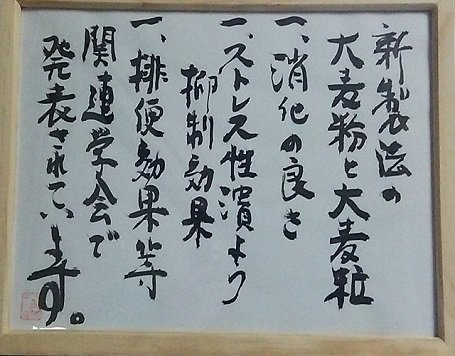 新製法の
大麦粉と大麦粒
一、消化の良さ
一、ストレス性潰よう
抑制効果
一、排便効果等
関連学会で
発表されています。